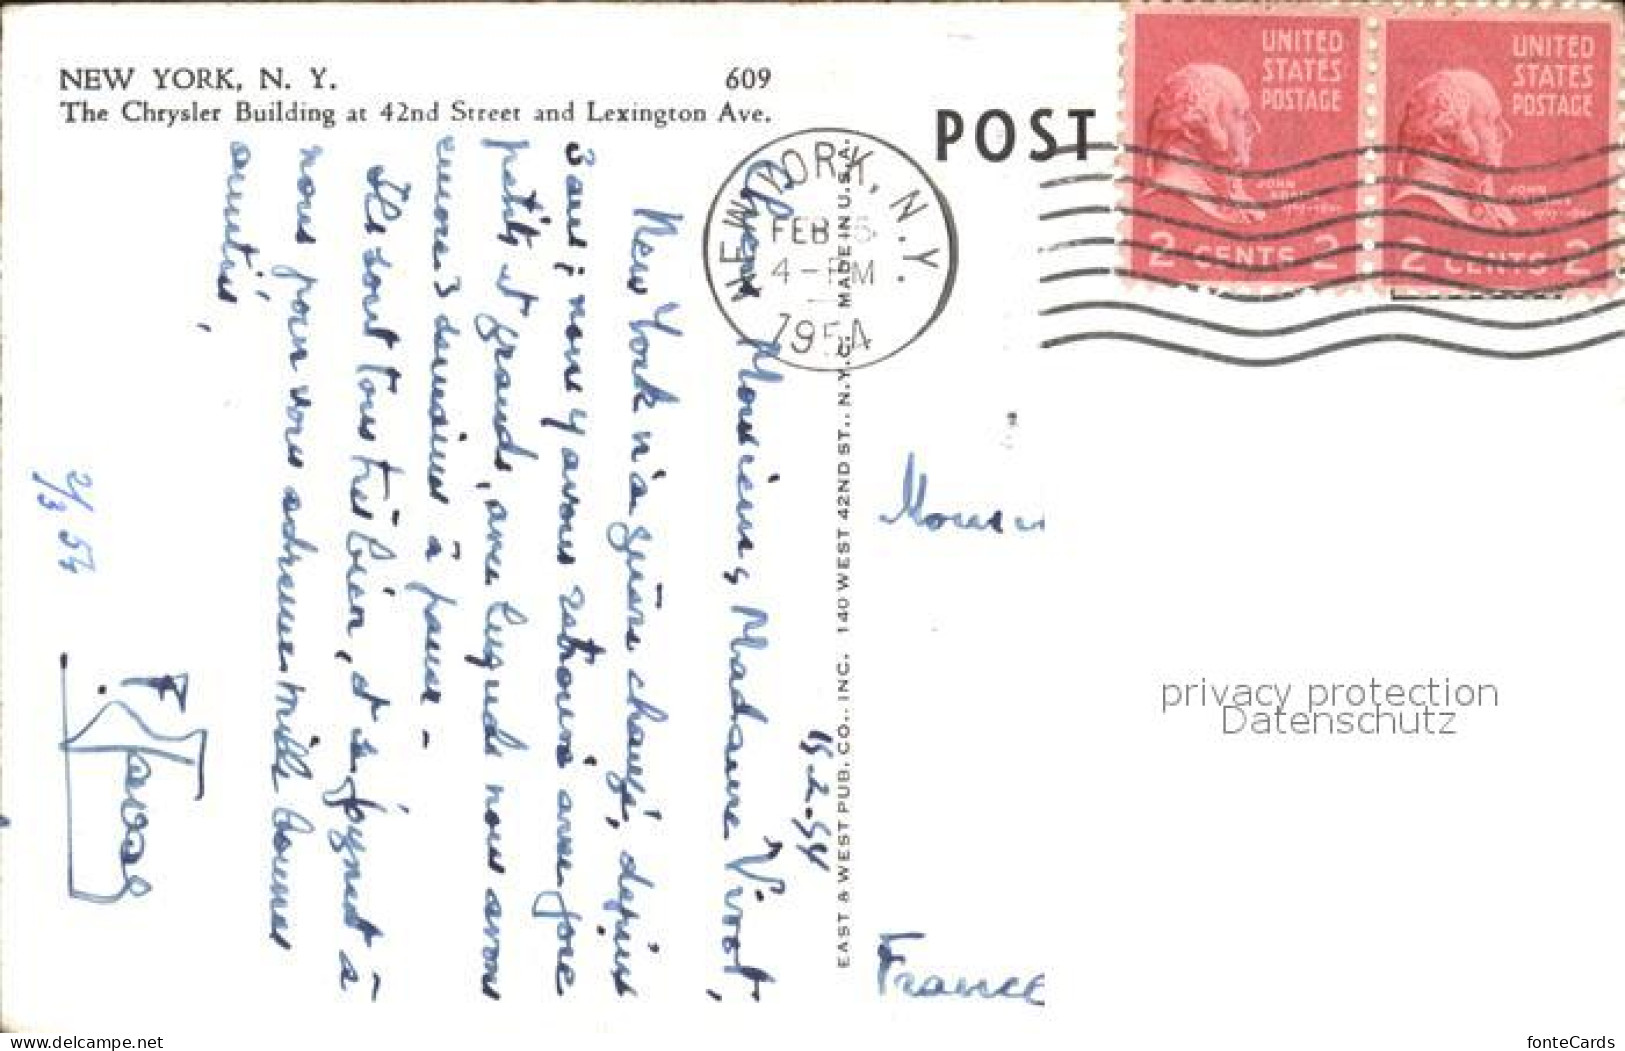 NEW YORK, N. Y. 609
The Chrysler Building at 42nd Street and Lexington Ave.
POST
UNITED STATES POSTAGE
JOHN ADAMS
2 CENTS 2
UNITED STATES POSTAGE
JOHN ADAMS
2 CENTS 2
NEW YORK, N.Y.
FEB 15
4-PM
1954
EAST & WEST PUB. CO., INC. 140 WEST 42ND ST., N.Y.C. MADE IN U.S.A.
15-2-54
Chers Monsieur, Madame Vivot,
New York n'a guère changé, depuis
3 ans ; nous y avons retrouvé avec joie
petits et grands, avec lesquels nous avons
encore 3 semaines à passer -
Ils sont tous très bien, et se joignent à
nous pour vous adresser mille bonnes
amitiés,
2/3 54
Monsieur
France
privacy protection
Datenschutz
www.delcampe.net
fonteCards